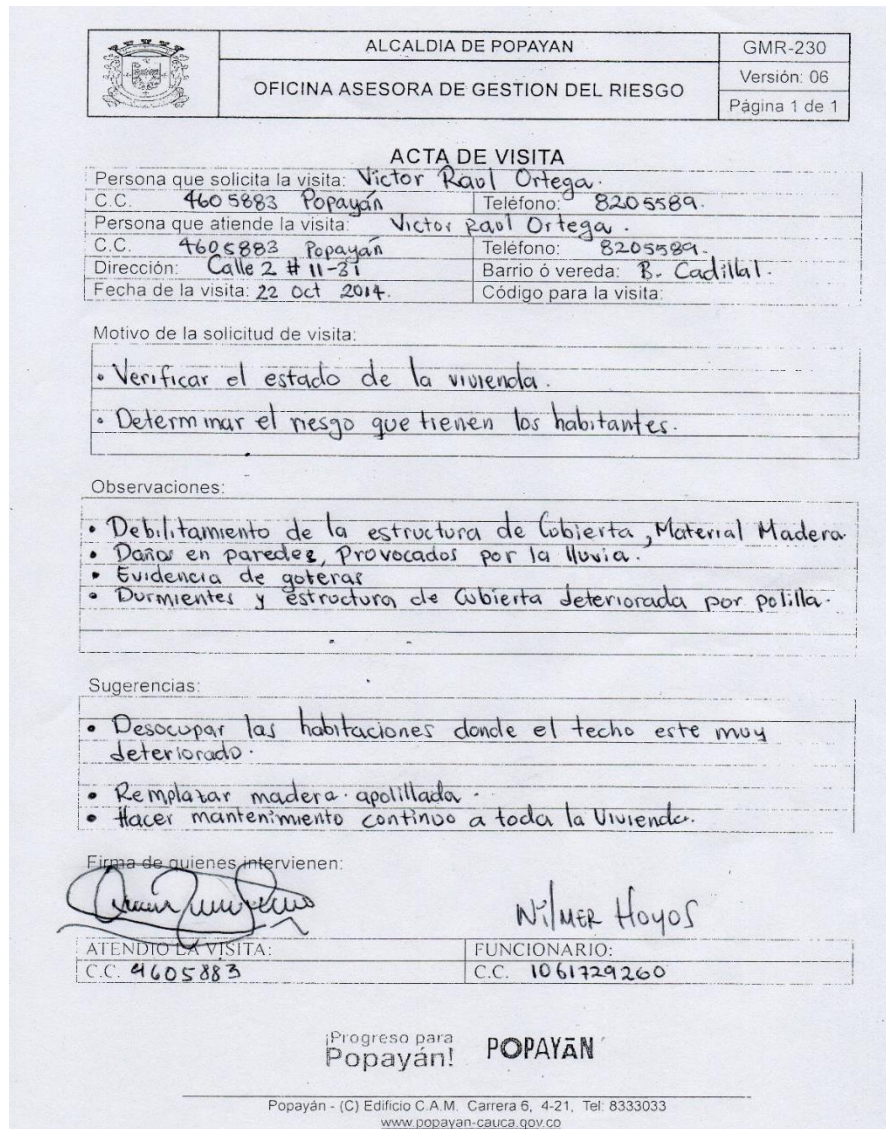 ALCALDIA DE POPAYAN
GMR-230
OFICINA ASESORA DE GESTION DEL RIESGO
Versión: 06
Página 1 de 1
ACTA DE VISITA
Persona que solicita la visita: Victor Raul Ortega.
C.C. 4605883 Popayán Teléfono: 8205589.
Persona que atiende la visita: Victor Raul Ortega.
C.C. 4605883 Popayán Teléfono: 8205589.
Dirección: Calle 2 # 11-31 Barrio ó vereda: B. Cadillal.
Fecha de la visita: 22 Oct 2014. Código para la visita:
Motivo de la solicitud de visita:
• Verificar el estado de la vivienda.
• Determinar el riesgo que tienen los habitantes.
Observaciones:
• Debilitamiento de la estructura de Cubierta, Material Madera
• Daños en paredes, Provocados por la lluvia.
• Evidencia de goteras
• Durmientes y estructura de Cubierta deteriorada por polilla.
Sugerencias:
• Desocupar las habitaciones donde el techo este muy
deteriorado.
• Remplazar madera apolillada.
• Hacer mantenimiento continuo a toda la Vivienda.
Firma de quienes intervienen:
Wilmer Hoyos
ATENDIO LA VISITA: FUNCIONARIO:
C.C. 4605883 C.C. 1061729260
¡Progreso para
Popayán!
POPAYÁN
Popayán - (C) Edificio C.A.M. Carrera 6, 4-21, Tel: 8333033
www.popayan-cauca.gov.co